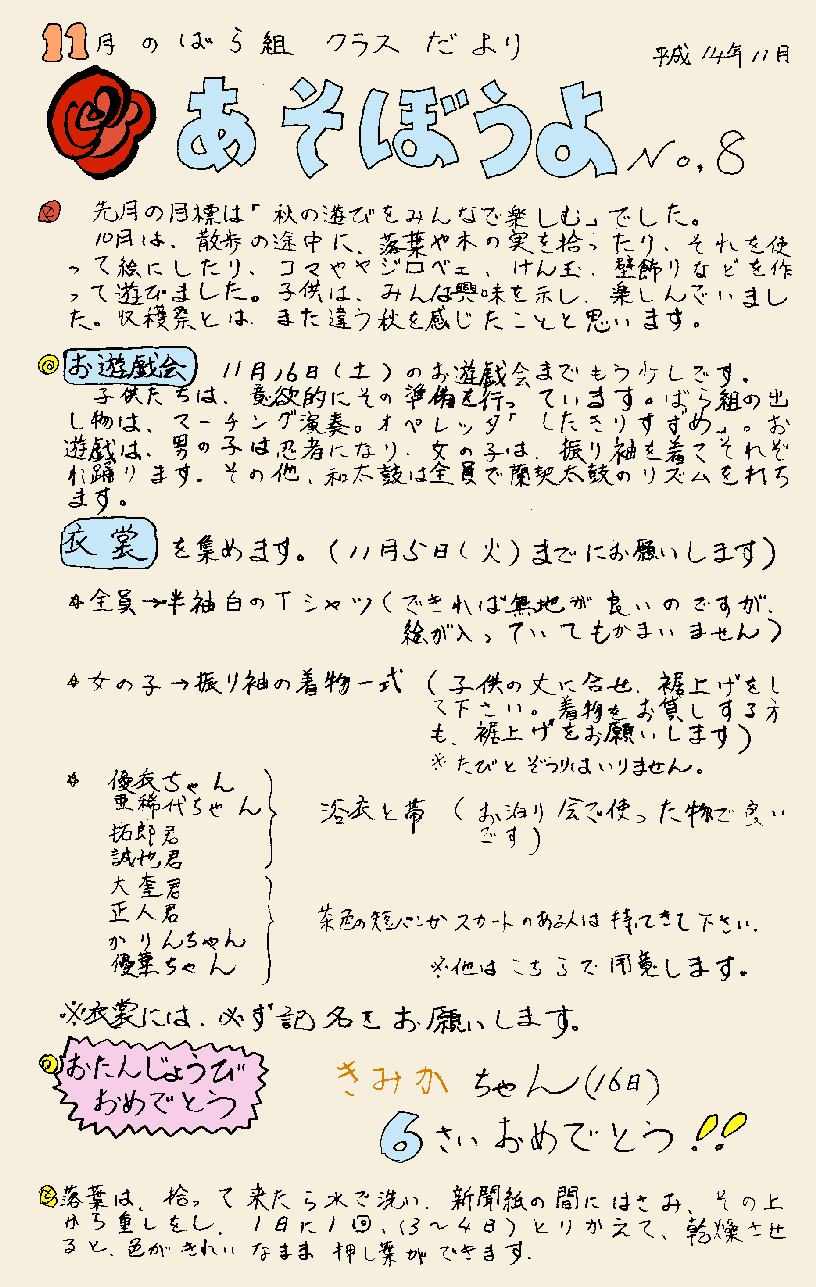 11月のばら組 クラスだより
平成14年11月
あそぼうよ No.8
先月の目標は「秋の遊びをみんなで楽しむ」でした。
10月は、散歩の途中に、落葉や木の実を拾ったり、それを使
って絵にしたり、コマややジロベェ、けん玉、壁飾りなどを作
って遊びました。子供は、みんな興味を示し、楽しんでいまし
た。収穫祭とは、また違う秋を感じたことと思います。
お遊戯会 11月16日(土)のお遊戯会までもう少しです。
子供たちは、意欲的にその準備を行っています。ばら組の出
し物は、マーチング演奏。オペレッタ「したきりすずめ」。お
遊戯は、男の子は忍者になり、女の子は、振り袖を着てそれぞ
れ踊ります。その他、和太鼓は全員で太鼓のリズムを打ち
ます。
衣裳 を集めます。(11月5日(火)までにお願いします)
全員→半袖白のTシャツ(できれば無地が良いのですが、
絵が入っていてもかまいません)
女の子→振り袖の着物一式(子供の丈に合せ、裾上げをし
て下さい。着物をお貸しする方
も、裾上げをお願いします)
※たびとぞうりはいりません。
優衣ちゃん
亜稀代ちゃん
拓郎君
誠也君
浴衣と帯(お泊り会で使った物で良い
です)
大奎君
正人君
かりんちゃん
優葉ちゃん
茶色の短パンかスカートのある人は持ってきて下さい。
※他はこちらで用意します。
※衣裳には、必ず記名をお願いします。
おたんじょうび
おめでとう
きみかちゃん(16日)
6さいおめでとう!!
落葉は、拾って来たら水で洗い、新聞紙の間にはさみ、その上
から重しをし、1日に1回、(3～4日)とりかえて、乾燥させ
ると、色がきれいなまま押し葉ができます。